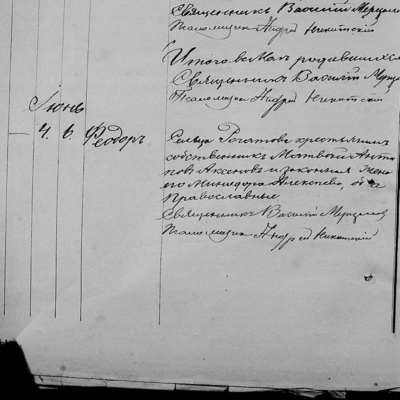 Священникъ Василій Мерцаловъ
Псаломщикъ Андрей Никитскій
Итого въ Маѣ родившихся
Священникъ Василій Мерца
Псаломщикъ Андрей Никитскій
Іюнь
4. 6. Ѳеодоръ. Сельца крестьянинъ
собственникъ Матвѣй Анти
повъ Аксеновъ и законная жена
его Алексѣева, оба
Православные.
Священникъ Василій Мерцаловъ
Псаломщикъ Андрей Никитскій